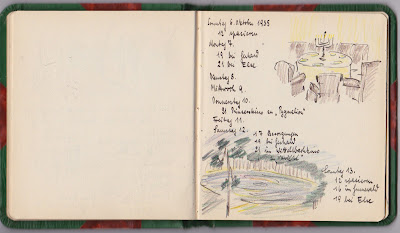 Sonntag 6. Oktober 1935
12 spazieren
Montag 7.
19 bei Gerhard
21 bei Else
Dienstag 8.
Mittwoch 9.
Donnerstag 10.
21 in „Pygmalion"
Freitag 11.
Samstag 12.
17 Besorgungen
19 bei Gerhard
21 in
Sonntag 13.
12 spazieren
16 in Grunewald
19 bei Else